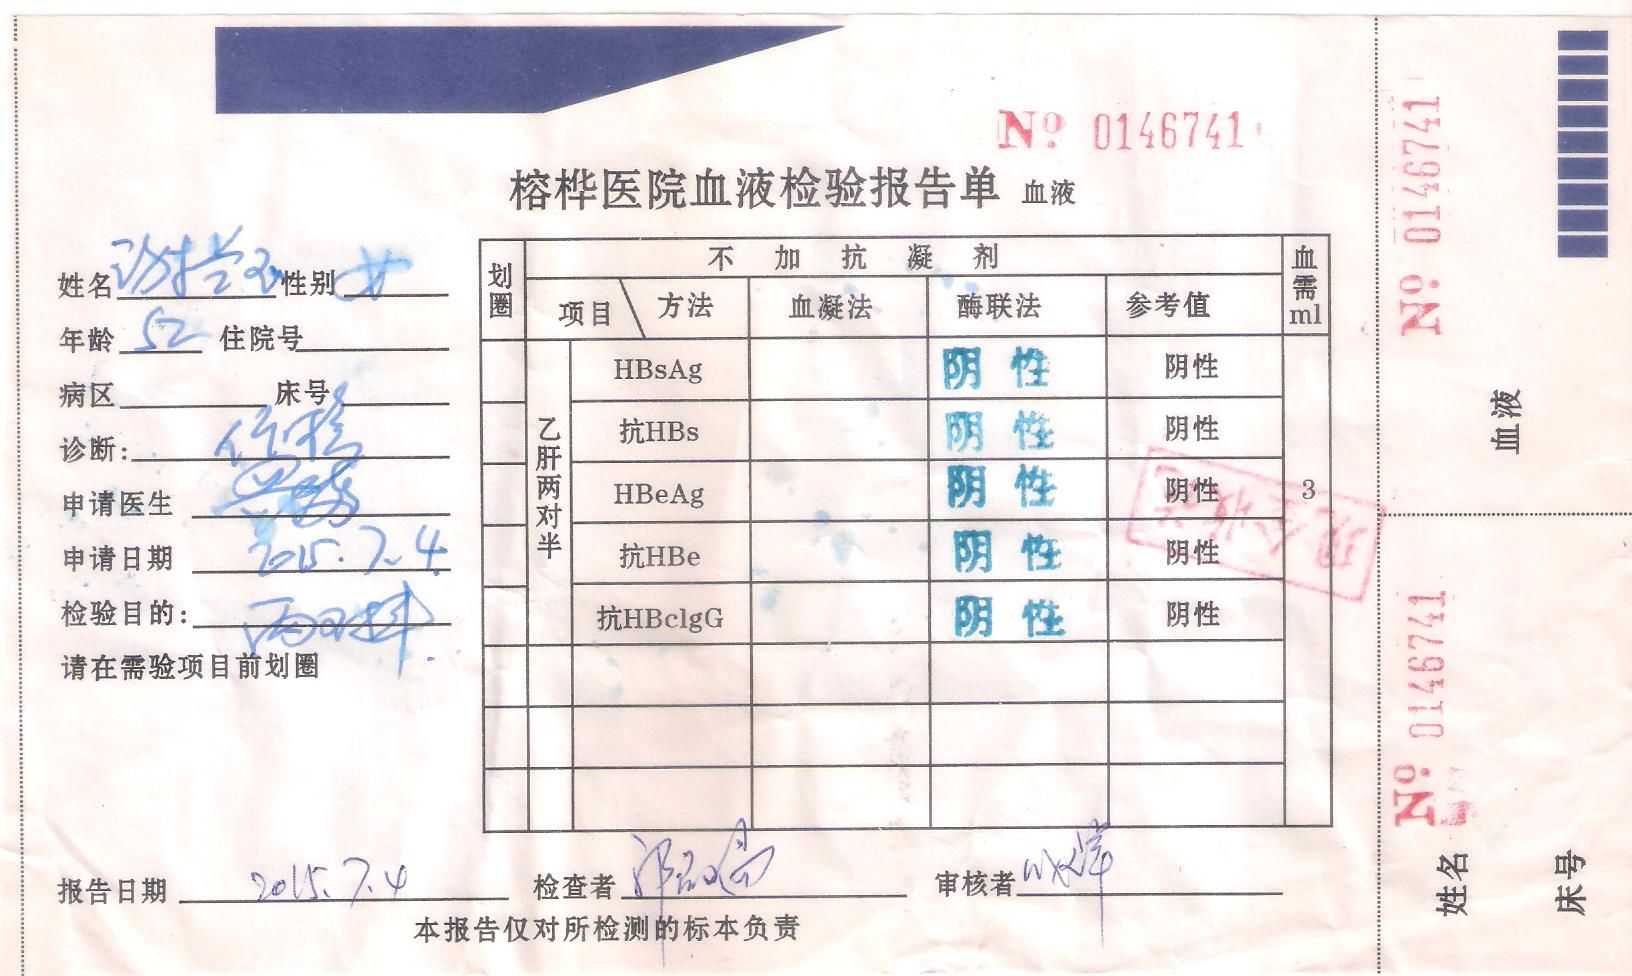 № 0146741
榕桦医院血液检验报告单 血液
姓名 性别 女
年龄 52 住院号
病区 床号
诊断:
申请医生
申请日期 2015.7.4
检验目的: 两对半
请在需验项目前划圈
划圈 不加抗凝剂 血需ml
项目 方法 血凝法 酶联法 参考值
乙肝两对半
HBsAg 阴性 阴性
抗HBs 阴性 阴性
HBeAg 阴性 阴性 3
抗HBe 阴性 阴性
抗HBclgG 阴性 阴性
报告日期 2015.7.4 检查者 审核者
本报告仅对所检测的标本负责
№ 0146741
血液
№ 0146741
姓名
床号